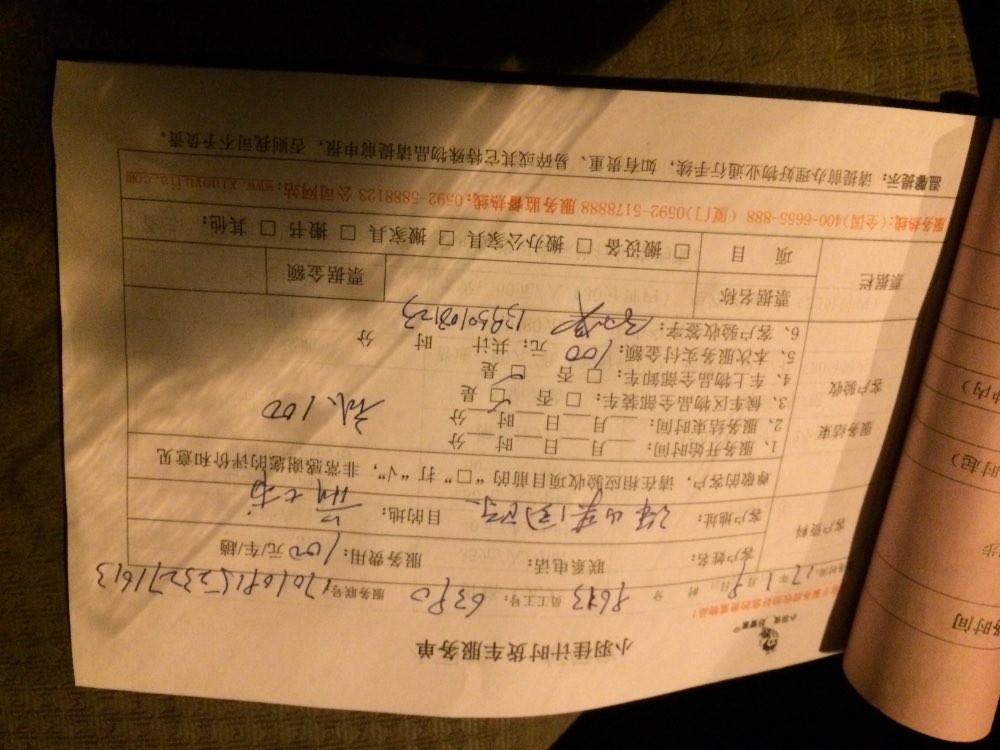 小羽佳计时货车服务单
小羽佳 好管家
17年1月8日 时 分 8643 员工工号: 6380 服务联号:
客户资料
客户姓名: 联系电话: 服务费用: 100元/车/趟
客户地址: 目的地:
尊敬的客户，请在相应验收项目前的“□”打“√”，非常感谢您的评价和意见
服务结束
客户验收
1、服务开始时间: 月 日 时 分
2、服务结束时间: 月 日 时 分
3、候车区物品全部装车: □否 □是 100
4、车上物品全部卸车: □否 □是
5、本次服务实付金额: 100 元; 共计 时 分
6、客户验收签字: 13950108123
票据栏
票据名称 票据金额
项 目 □搬设备 □搬办公家具 □搬家具 □搬书 □其他:
服务热线:(全国)400-6655-888 (厦门)0592-5178888 服务监督热线:0592-5888123 公司网站:www.xiaoyujia.com
温馨提示: 请提前办理好物业通行手续, 如有贵重、易碎或其它特殊物品请提前申报, 否则我司不予负责。
务时间
步
时起)
中内)